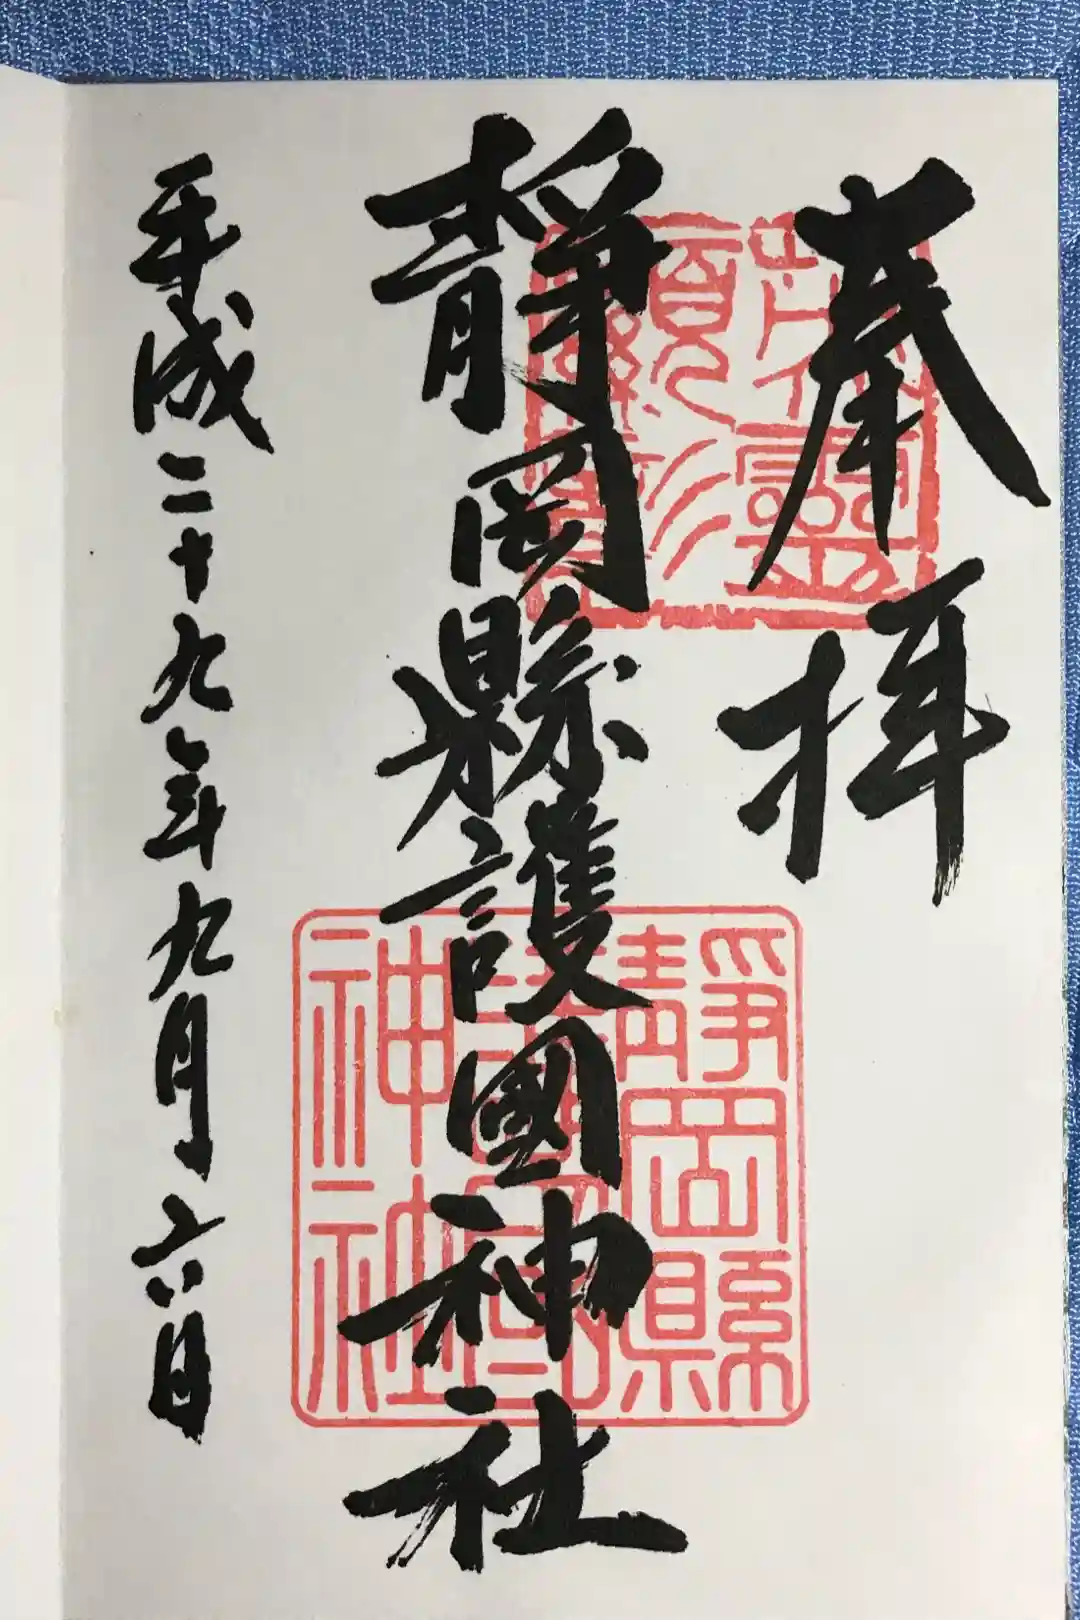 奉拝
靜岡縣護國神社
平成二十九年九月六日
靜岡縣
護國
神社